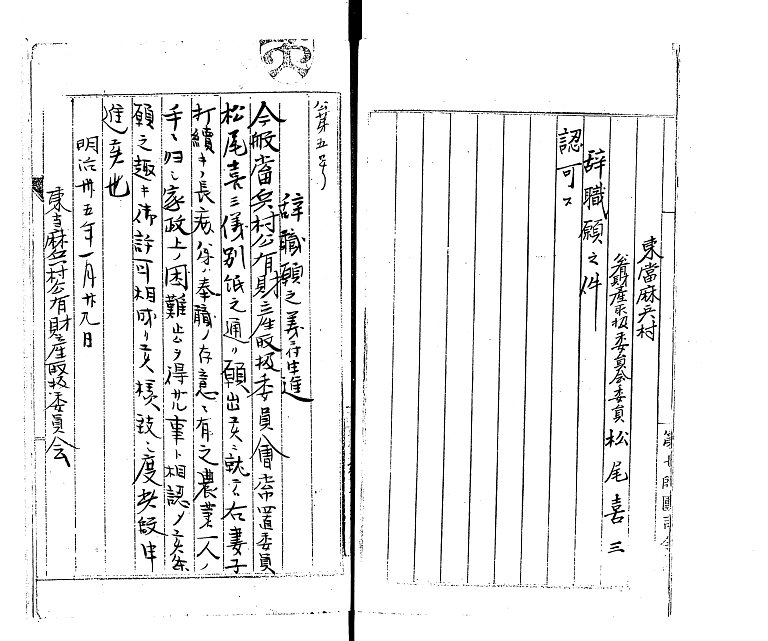 東當麻兵村
公有財産取扱委員会委員 松尾喜三
辞職願之件
認可ス
第七師團司令
公第五号
辞職願之義ニ付申進
今般當兵村公有財産取扱委員會常置委員
松尾喜三儀別紙之通リ願出候ニ就テハ右妻子
打續キノ長病 奉職ノ存意ニ有之農業一人ノ
手ニ归シ家政上ノ困難止ヲ得サル事ト相認メ候条
願之趣キ御許可相成リ候様致シ度此段申
進候也
明治卅五年一月廿九日
東當麻兵村公有財産取扱委員会